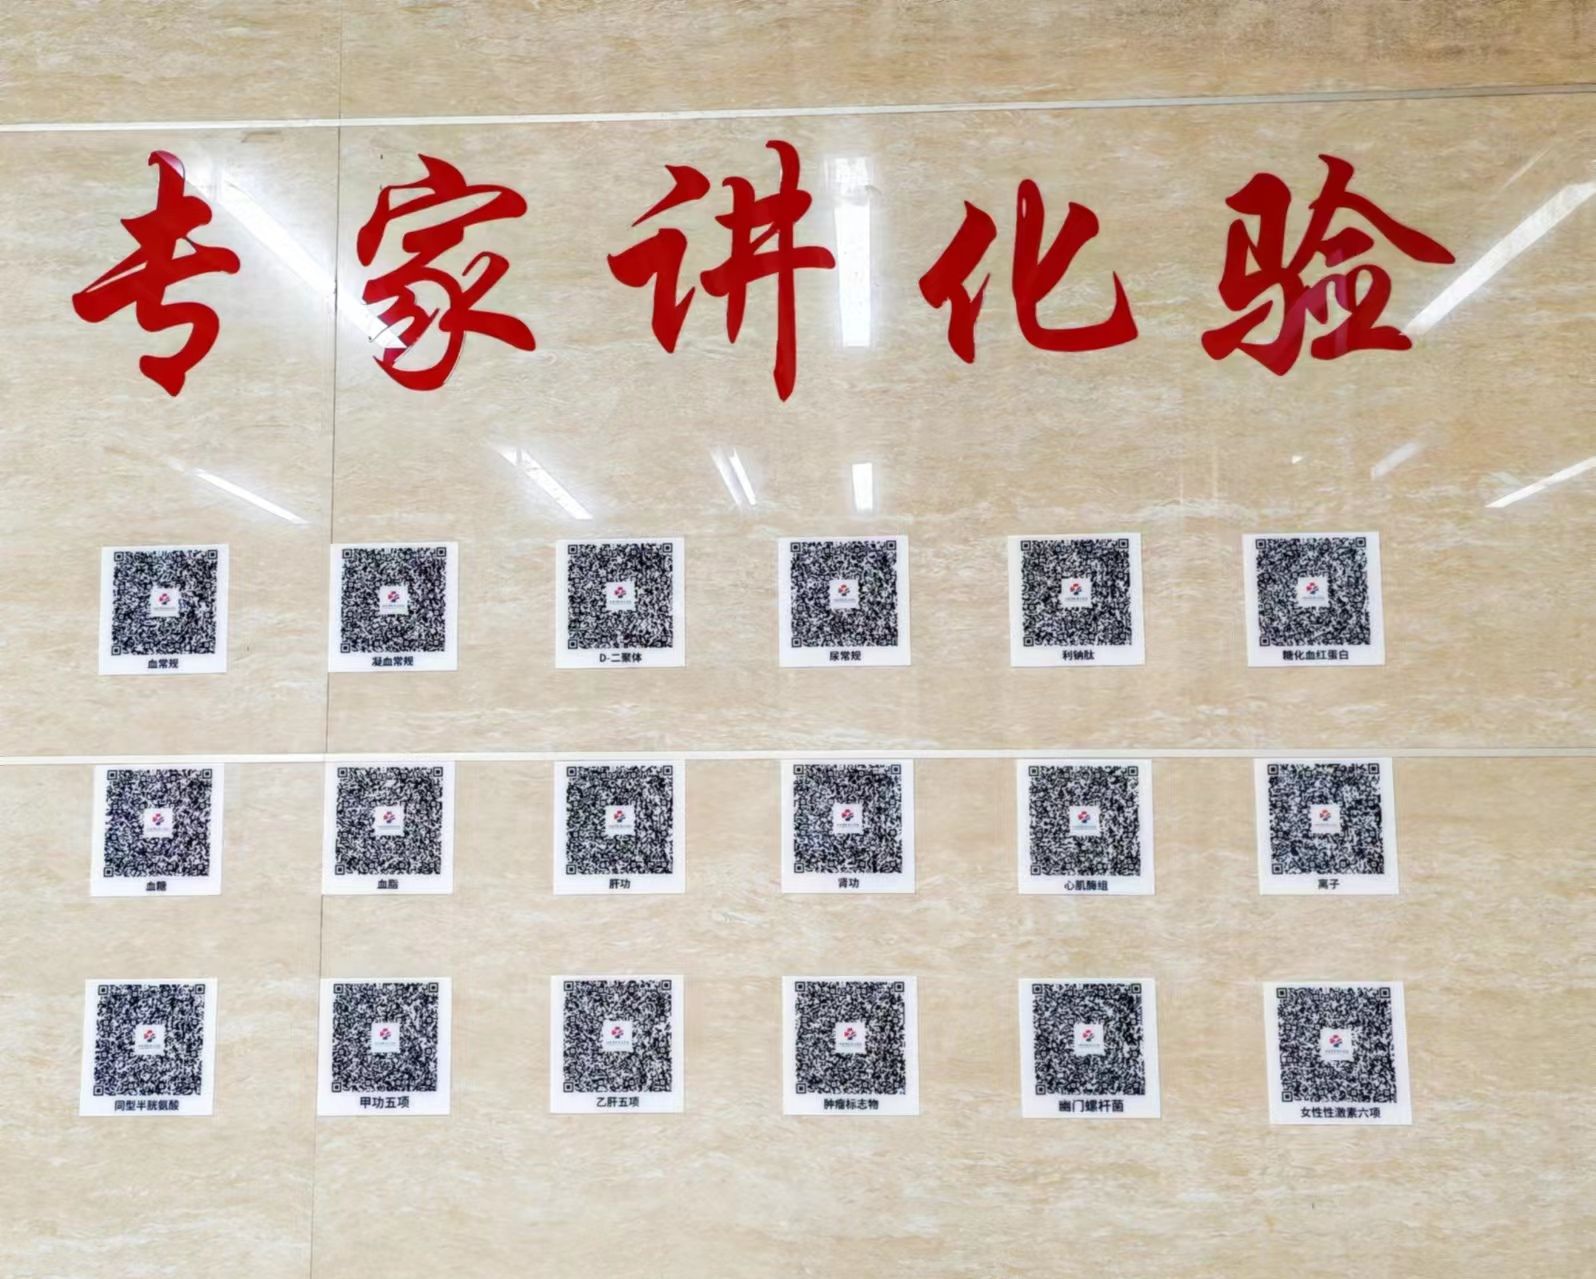 专家讲化验
血常规
凝血常规
D-二聚体
尿常规
利钠肽
糖化血红蛋白
血糖
血脂
肝功
肾功
心肌酶组
离子
同型半胱氨酸
甲功五项
乙肝五项
肿瘤标志物
幽门螺杆菌
女性性激素六项